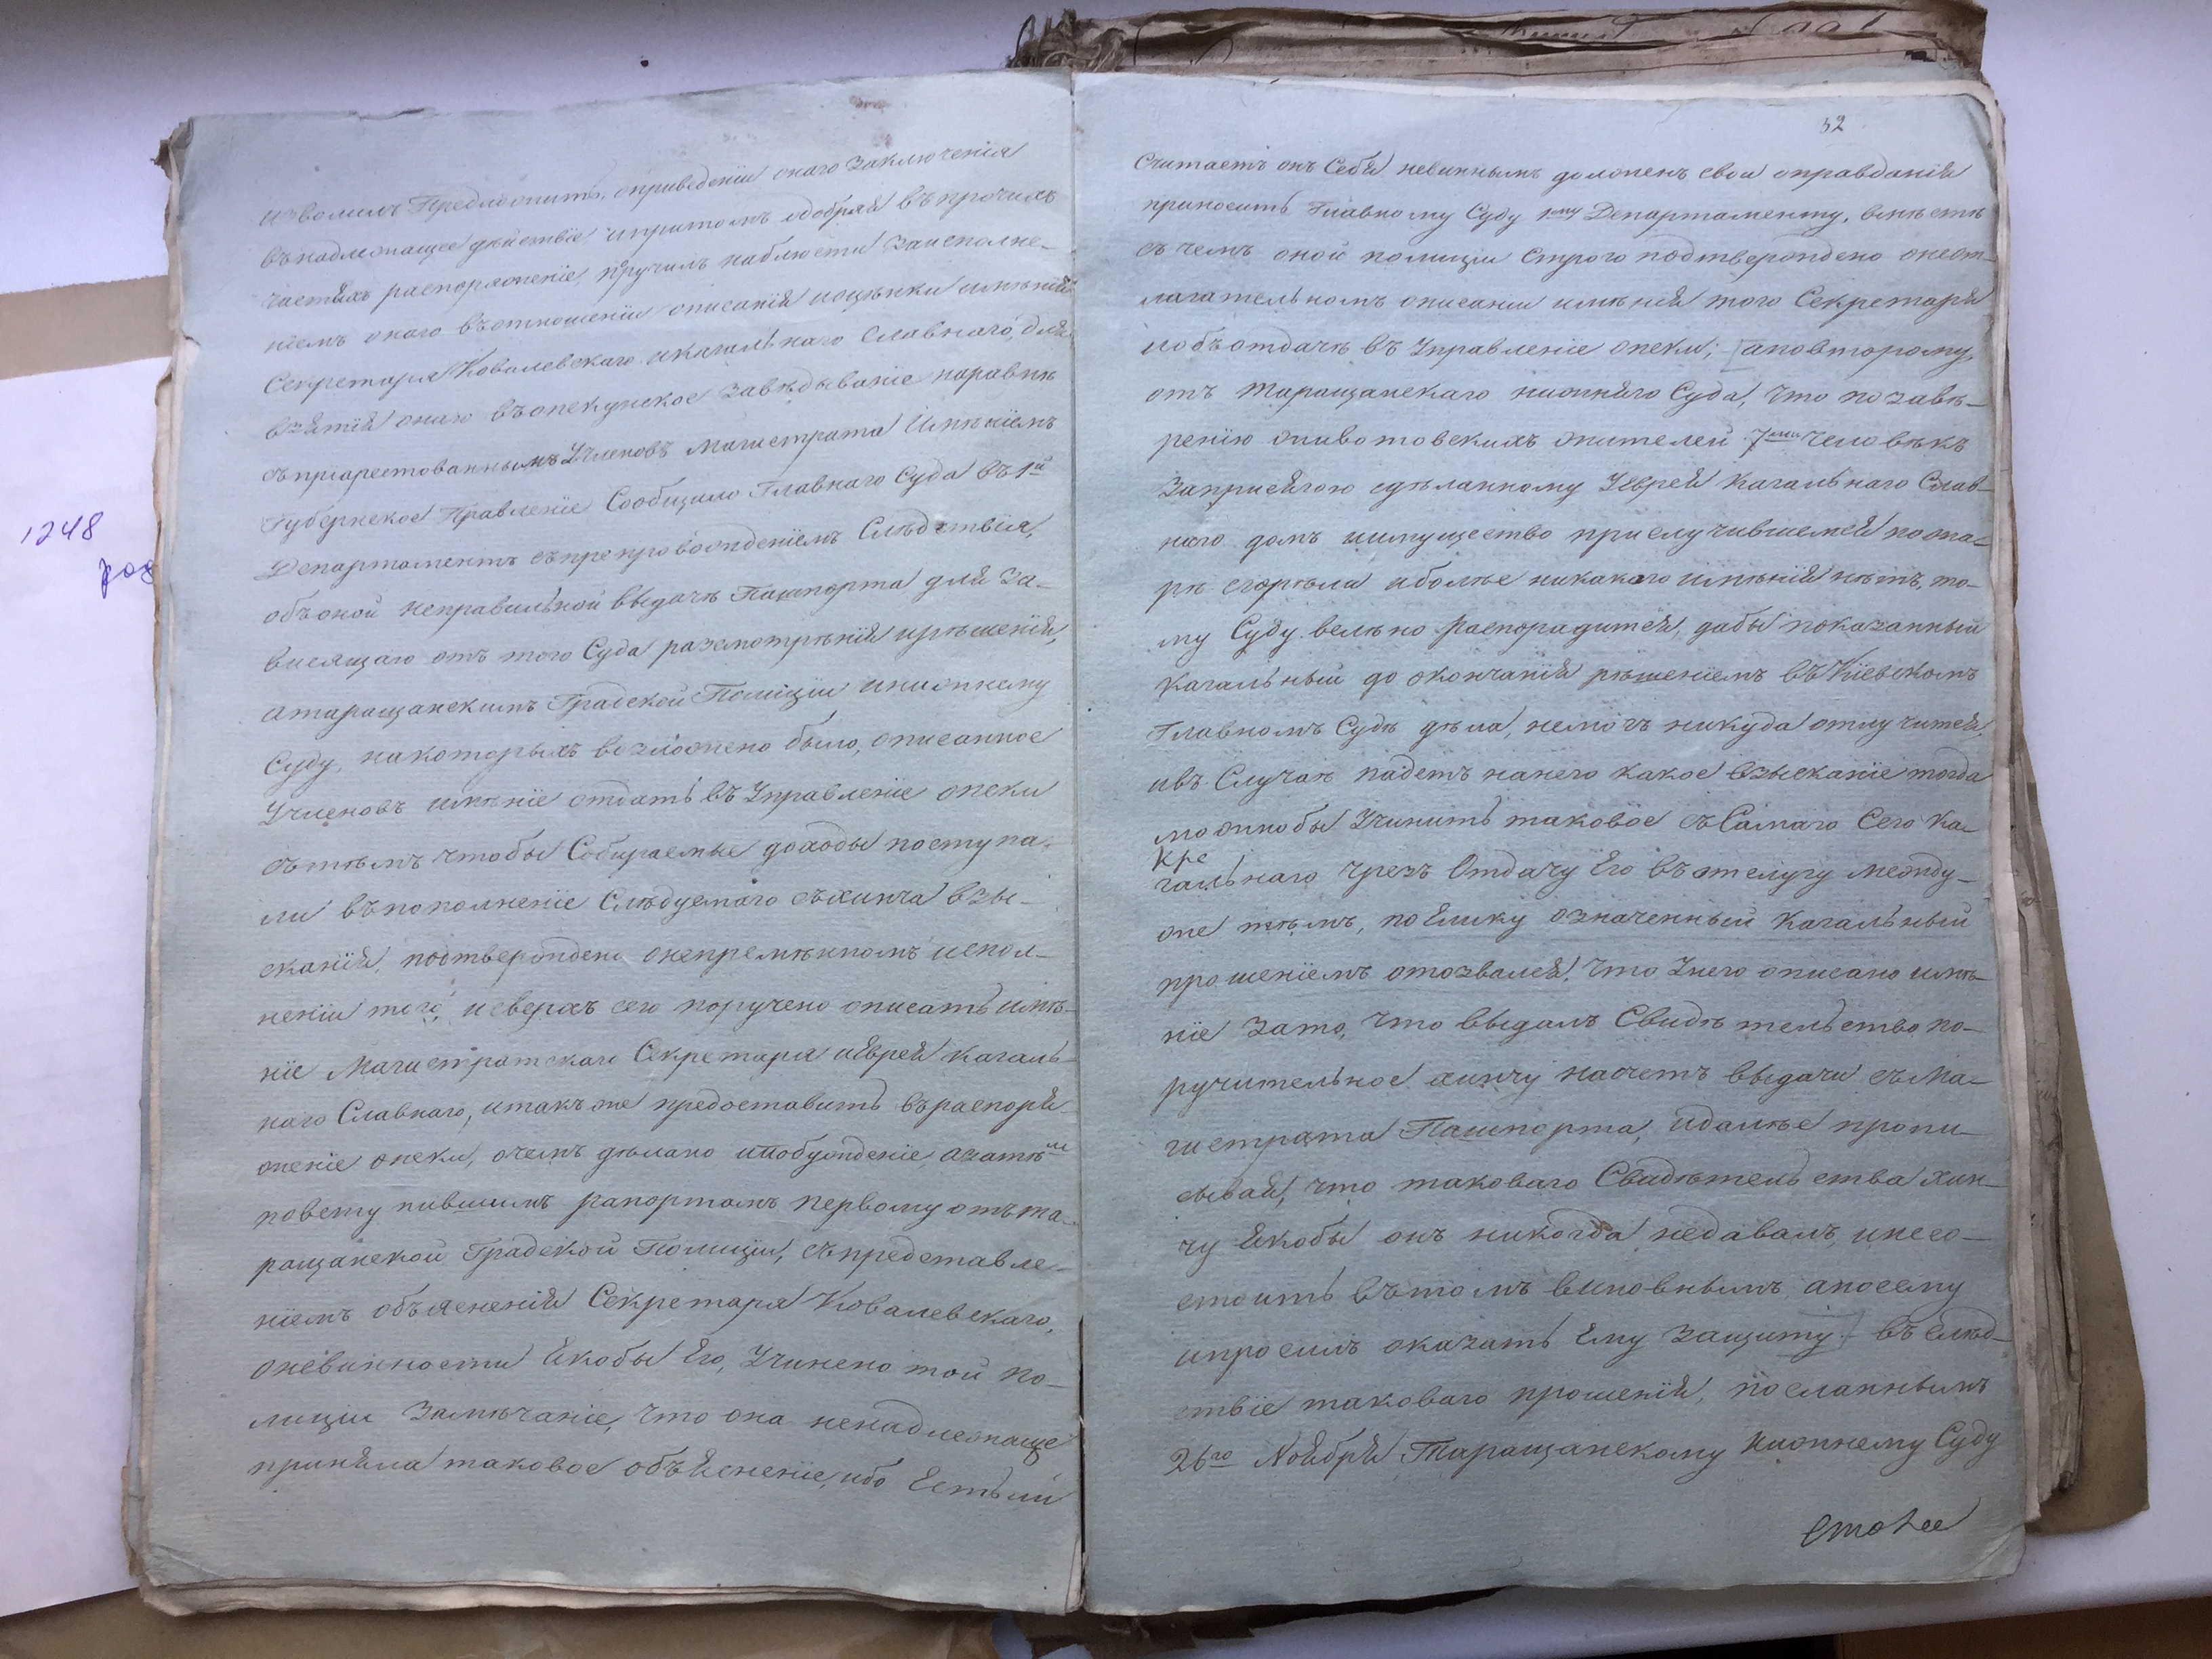 изволилъ Предложить, оприведеніи онаго Заключенія
въ надлежащее дѣйствіе, ипритомъ одобряя въ прочихъ
частяхъ распоряженіе, пручилъ наблюсти Заисполне-
ніемъ онаго въотношеніи описанія иоцѣнки имѣній
Секретаря Ковалевскаго икагальнаго Славнаго, для
взятія оныхъ въопекунское Завѣдываніе наравнѣ
съ приарестованнымъ Учленовъ Магистрата Имѣніемъ
Губернское Правленіе Сообщило Главнаго Суда въ 1й
Департаментъ съпрепровожденіемъ Слѣдствія,
объоной неправильной выдачѣ Пашпорта для за-
висящаго отъ того Суда разсмотрѣнія ирѣшенія,
атаращанскимъ Градской Полиціи инижнему
Суду, накоторыхъ возложено было, описанное
Учленовъ имѣніе отдать въ Управленіе опеки
сътѣмъ чтобы Собираемые доходы поступа-
ли въпополненіе Слѣдуемаго съхинча взы-
сканія, подтверждено онепремѣнномъ испол-
неніи того, исверхъ сего поручено описать имѣ-
ніе Магистратскаго Секретаря иЯврея кагаль-
наго Славнаго, итакъ же предоставить въраспоря-
женіе опеки, очемъ дѣлано ипобужденіе, азатѣмъ
повступившимъ рапортамъ первому отъта-
ращанской Градской Полиціи, съпредставле-
ніемъ объясненія Секретаря Ковалевскаго,
оневинности Якобы Его, Учинено той по-
лиціи Замѣчаніе, что она ненадлежаще
приняла таковое объясненіе, ибо Естьли
32
Считаетъ онъ Себя невиннымъ долженъ свои оправданія
приносить Главному Суду 1му Департаменту, вмѣстѣ
съ чемъ оной полиціи Строго подтверждено онеот-
лагательномъ описаніи имѣнія того Секретаря
иобъотдачѣ въ Управленіе опеки; [аповторому,
отъ Таращанскаго нижняго Суда, что позавѣ-
ренію оживотовскихъ жителей 7ми человѣкъ
Заприсягою сдѣланному Уеврея кагальнаго Слав-
наго домъ иимущество прислучившемся пожа-
рѣ сгорѣли иболѣе никакаго имѣнія нѣтъ, то-
му Суду велѣно распорядится, дабы показанный
Кагальный до окончанія рѣшеніемъ въ Кіевскомъ
Главномъ Судѣ дѣла, немогъ никуда отлучится,
ивъ Случаѣ падетъ нанего какое взысканіе тогда
можнобы Учинить таковое съСамаго Сего Ка-
кре
гальнаго чрезъ Отдачу Его въ отслугу между-
оне тѣмъ, поелику означенный Кагальный
прошеніемъ отозвался, что Унего описано имѣ-
ніе Зато, что выдалъ Свидѣтельство по-
ручительное хинчу насчетъ выдачи съма-
гистрата Пашпорта, идалѣе пропи-
сывая, что таковаго Свидѣтельства хин-
чу Якобы онъ никогда недавалъ, инесо-
стоитъ въ томъ виновнымъ апосему
ипросилъ оказать Ему Защиту] въ слѣд-
ствіе таковаго прошенія, посланнымъ
26го Ноября Таращанскому нижнему Суду
1248